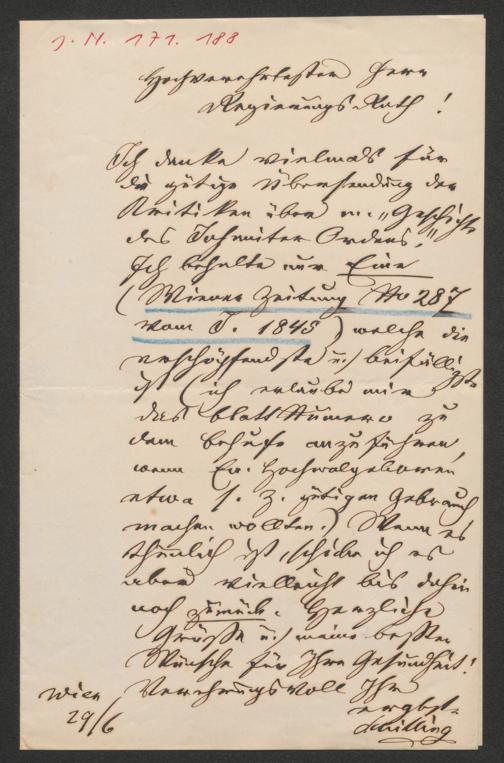 J. N. 171.188
Hochverehrtester Herr
Regierungs-Rath!
Ich danke vielmals für
die gütige Übersendung der
Kritiken über m. „Geschichte
des Johanniter Ordens."
Ich behalte nur Eine
(Wiener Zeitung No 287
vom J. 1845) welche die
erschöpfendste u. beifälligste
ist (ich erlaube mir
das Blatt Numero zu
dem Behufe anzuführen,
wenn Ew. Hochwolgeboren
etwa s. Z. gütigen Gebrauch
machen wollten.) Wenn es
thunlich ist, schiebe ich es
aber vielleicht bis dahin
noch zurück. Herzliche
Grüsse u. meine besten
Wünsche für Ihre Gesundheit!
Verehrungsvoll Ihr
Wien
29/6
ergbst.